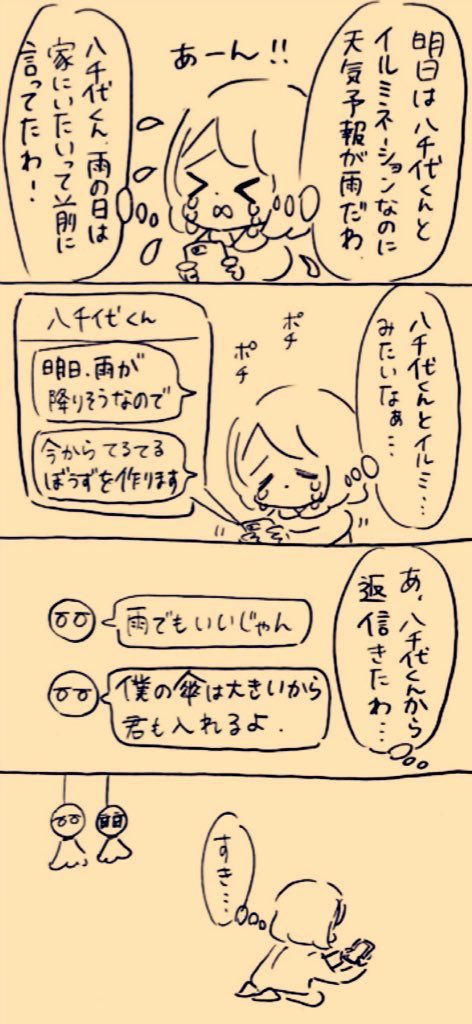 明日は八千代くんと
イルミネーションなのに
天気予報が雨だわ
あーん!!
八千代くん、雨の日は
家にいたいって前に
言ってたわ!
八千代くんとイルミ…
みたいなぁ…
ポチ
ポチ
八千代くん
明日、雨が
降りそうなので
今からてるてる
ぼうずを作ります
あ、八千代くんから
返信きたわ…
雨でもいいじゃん
僕の傘は大きいから
君も入れるよ.
すき…